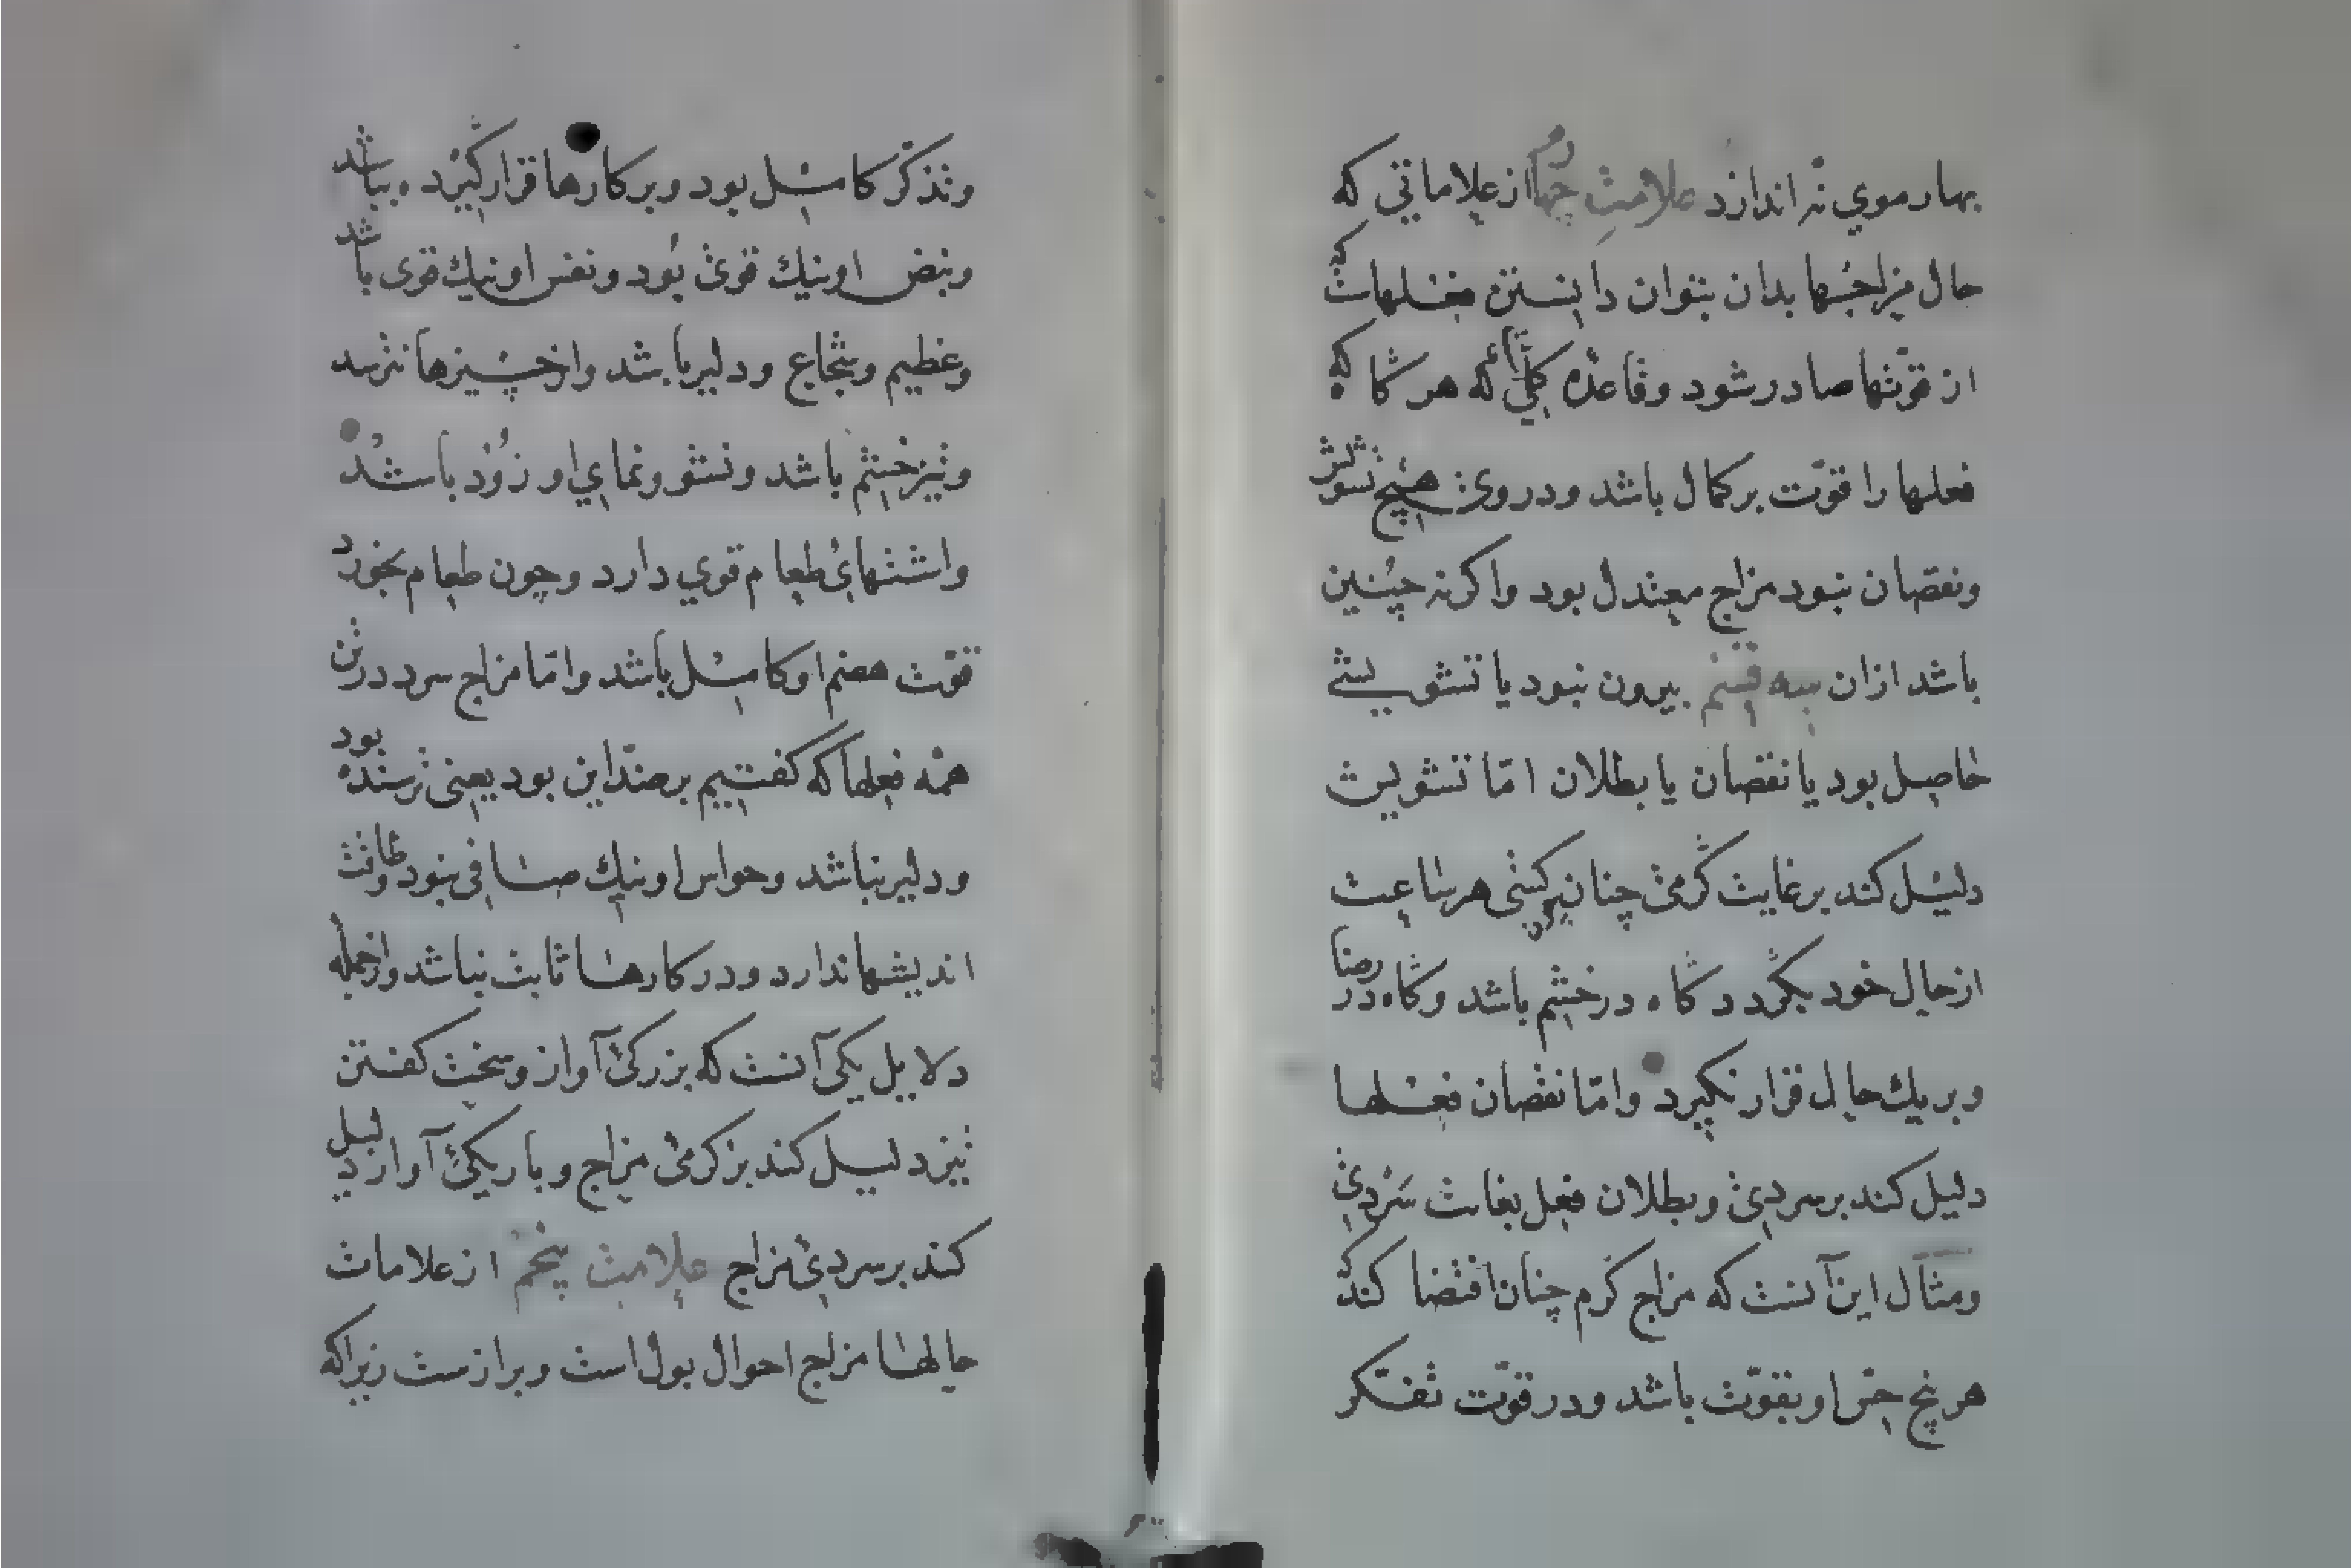 بهار موی نه اندازد علامت چهارم از علاماتی که
حال مزاجها بدان بتوان دانستن فعلهاست که
از قوتها صادر شود و قاعده کلی آنکه هر کاه که
فعلها را قوت بر کمال باشد و در وی هیچ تشویش
و نقصان نبود مزاج معتدل بود و اکر نه چنین
باشد ازان سه قسم بیرون نبود یا تشویشی
حاصل بود یا نقصان یا بطلان اما تشویش
دلیل کند بر غایت کرمی چنان کسی هر ساعت
از حال خود بکردد کاه در خشم باشد و کاه در رضا
و بر یک حال قرار نکیرد و اما نقصان فعلها
دلیل کند بر سردی و بطلان فعل بغایت سردی
و مثال این آنست که مزاج کرم چنان اقتضا کند که
هر پنج حس او بقوت باشد و در قوت تفکر
و تذکر کامل بود و بر کارها قرار کیرد
و نبض او نیک قوی بود و نفس او نیک قوی باشد
و عظیم و شجاع و دلیر باشد و از چیزها نترسد
و تیز خشم باشد و نشو و نمای او زود باشد
و اشتهای طعام قوی دارد و چون طعام بخورد
قوت هضم او کامل باشد و اما مزاج سرد درین
همه فعلها که کفتیم بر ضد این بود یعنی ترسنده بود
و دلیر نباشد و حواس او نیک صافی نبود و طاقت
اندیشها ندارد و در کارها ثابت نباشد و از جمله
دلایل یکی آنست که بزرکی آواز و سخت کفتن
نیز دلیل کند بر کرمی مزاج و باریکی آواز دلیل
کند بر سردی مزاج علامت پنجم از علامات
حالها مزاج احوال بول است و برازست زیرا که